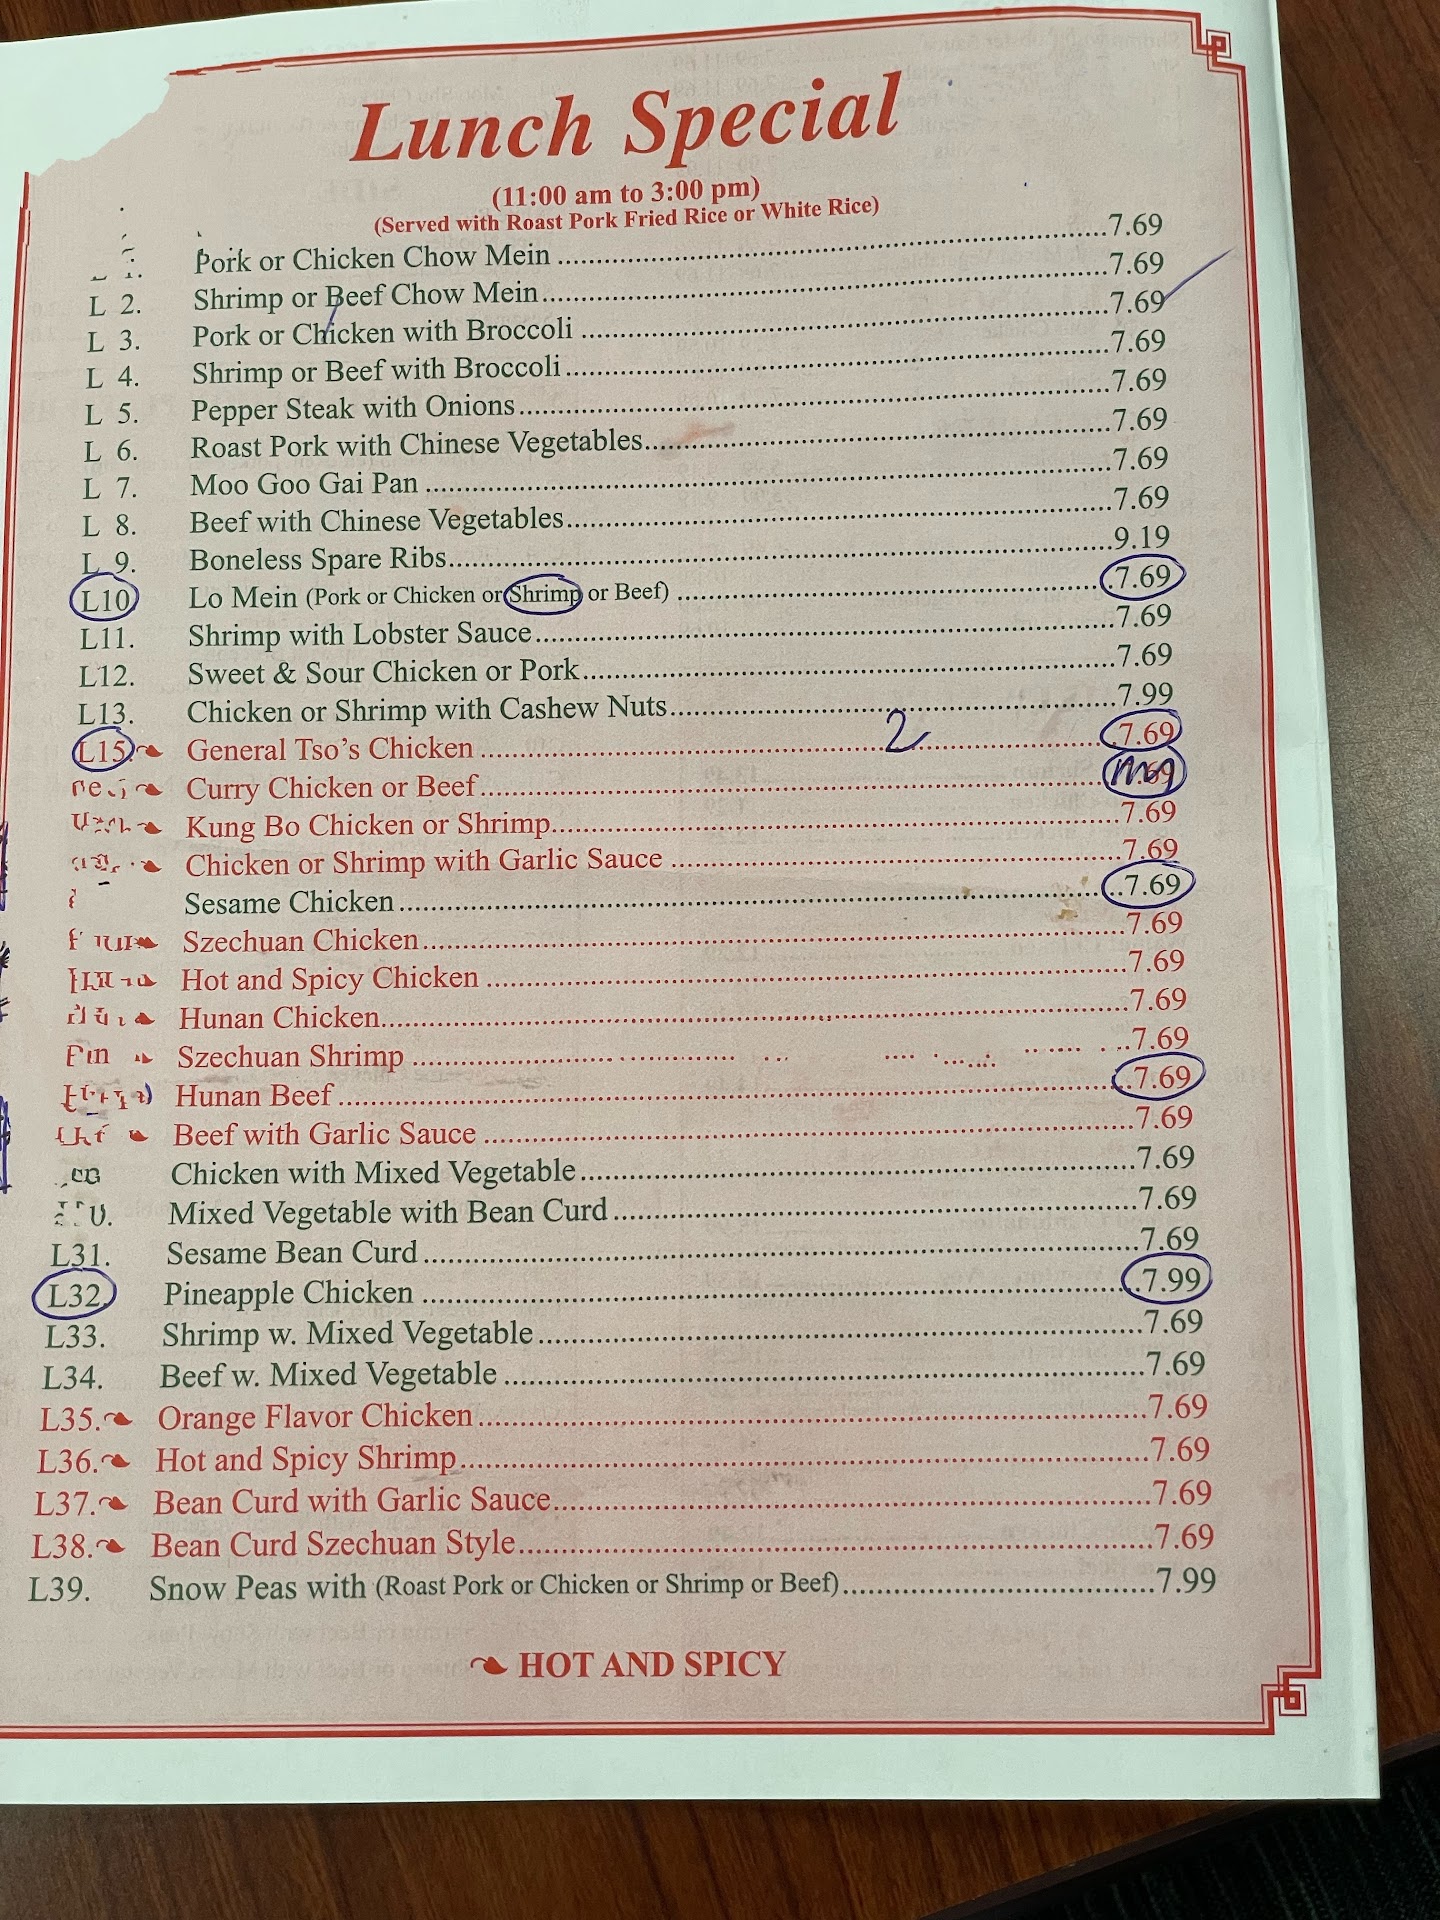 Lunch Special
(11:00 am to 3:00 pm)
(Served with Roast Pork Fried Rice or White Rice)
Pork or Chicken Chow Mein ....... 7.69
L 2. Shrimp or Beef Chow Mein ....... 7.69
L 3. Pork or Chicken with Broccoli ....... 7.69
L 4. Shrimp or Beef with Broccoli ....... 7.69
L 5. Pepper Steak with Onions ....... 7.69
L 6. Roast Pork with Chinese Vegetables ....... 7.69
L 7. Moo Goo Gai Pan ....... 7.69
L 8. Beef with Chinese Vegetables ....... 7.69
L 9. Boneless Spare Ribs ....... 9.19
L10 Lo Mein (Pork or Chicken or Shrimp or Beef) ....... 7.69
L11. Shrimp with Lobster Sauce ....... 7.69
L12. Sweet & Sour Chicken or Pork ....... 7.69
L13. Chicken or Shrimp with Cashew Nuts ....... 7.99
L15. General Tso's Chicken ....... 2 ....... 7.69
Curry Chicken or Beef .......
Kung Bo Chicken or Shrimp ....... 7.69
Chicken or Shrimp with Garlic Sauce ....... 7.69
Sesame Chicken ....... 7.69
Szechuan Chicken ....... 7.69
Hot and Spicy Chicken ....... 7.69
Hunan Chicken ....... 7.69
Szechuan Shrimp ....... 7.69
Hunan Beef ....... 7.69
Beef with Garlic Sauce ....... 7.69
Chicken with Mixed Vegetable ....... 7.69
Mixed Vegetable with Bean Curd ....... 7.69
L31. Sesame Bean Curd ....... 7.69
L32. Pineapple Chicken ....... 7.99
L33. Shrimp w. Mixed Vegetable ....... 7.69
L34. Beef w. Mixed Vegetable ....... 7.69
L35. Orange Flavor Chicken ....... 7.69
L36. Hot and Spicy Shrimp ....... 7.69
L37. Bean Curd with Garlic Sauce ....... 7.69
L38. Bean Curd Szechuan Style ....... 7.69
L39. Snow Peas with (Roast Pork or Chicken or Shrimp or Beef) ....... 7.99
HOT AND SPICY